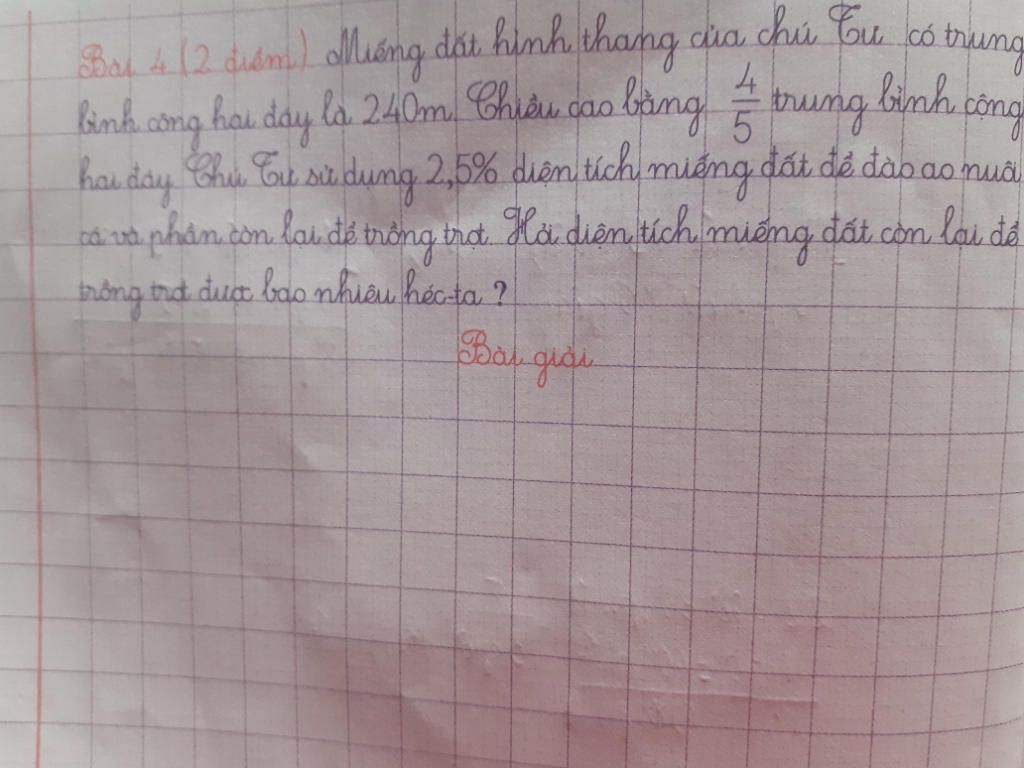 Bài 4 (2 điểm) Miếng đất hình thang của chú Tư có trung
bình cộng hai đáy là 240m. Chiều cao bằng 4/5 trung bình cộng
hai đáy. Chú Tư sử dụng 2,5% diện tích miếng đất để đào ao nuôi
cá và phần còn lại để trồng trọt. Hỏi diện tích miếng đất còn lại để
trồng trọt được bao nhiêu héc-ta ?
Bài giải